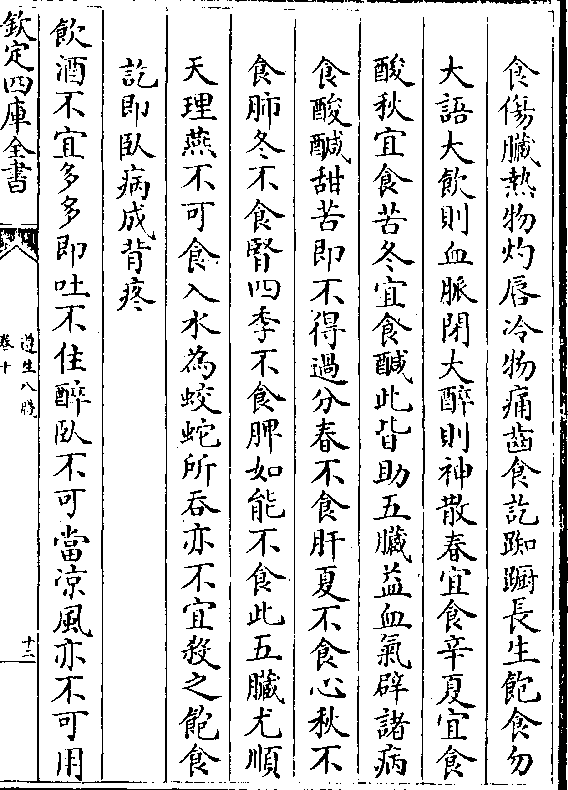 食傷臟熱物灼唇冷物痛齒食訖踟蹰長生飽食勿
大語大飲則血脈閉大醉則神散春宜食辛夏宜食
酸秋宜食苦冬宜食鹹此皆助五臟益血氣辟諸病
食酸鹹甜苦即不得過分春不食肝夏不食心秋不
食肺冬不食腎四季不食脾如能不食此五臟尤順
天理燕不可食入水為蛟蛇所吞亦不宜殺之飽食
訖即臥病成背疼
飲酒不宜多多即吐不住醉臥不可當凉風亦不可用
欽定四庫全書
遵生八牋
卷十
十二